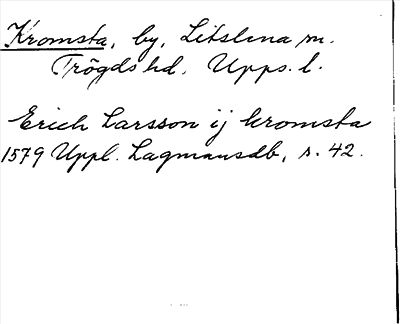 Kromsta, by, Litslena sn.
Trögds hd. Upps. l.
Erich Larsson ij kromsta
1579 Uppl. Lagmansdb, s. 42.